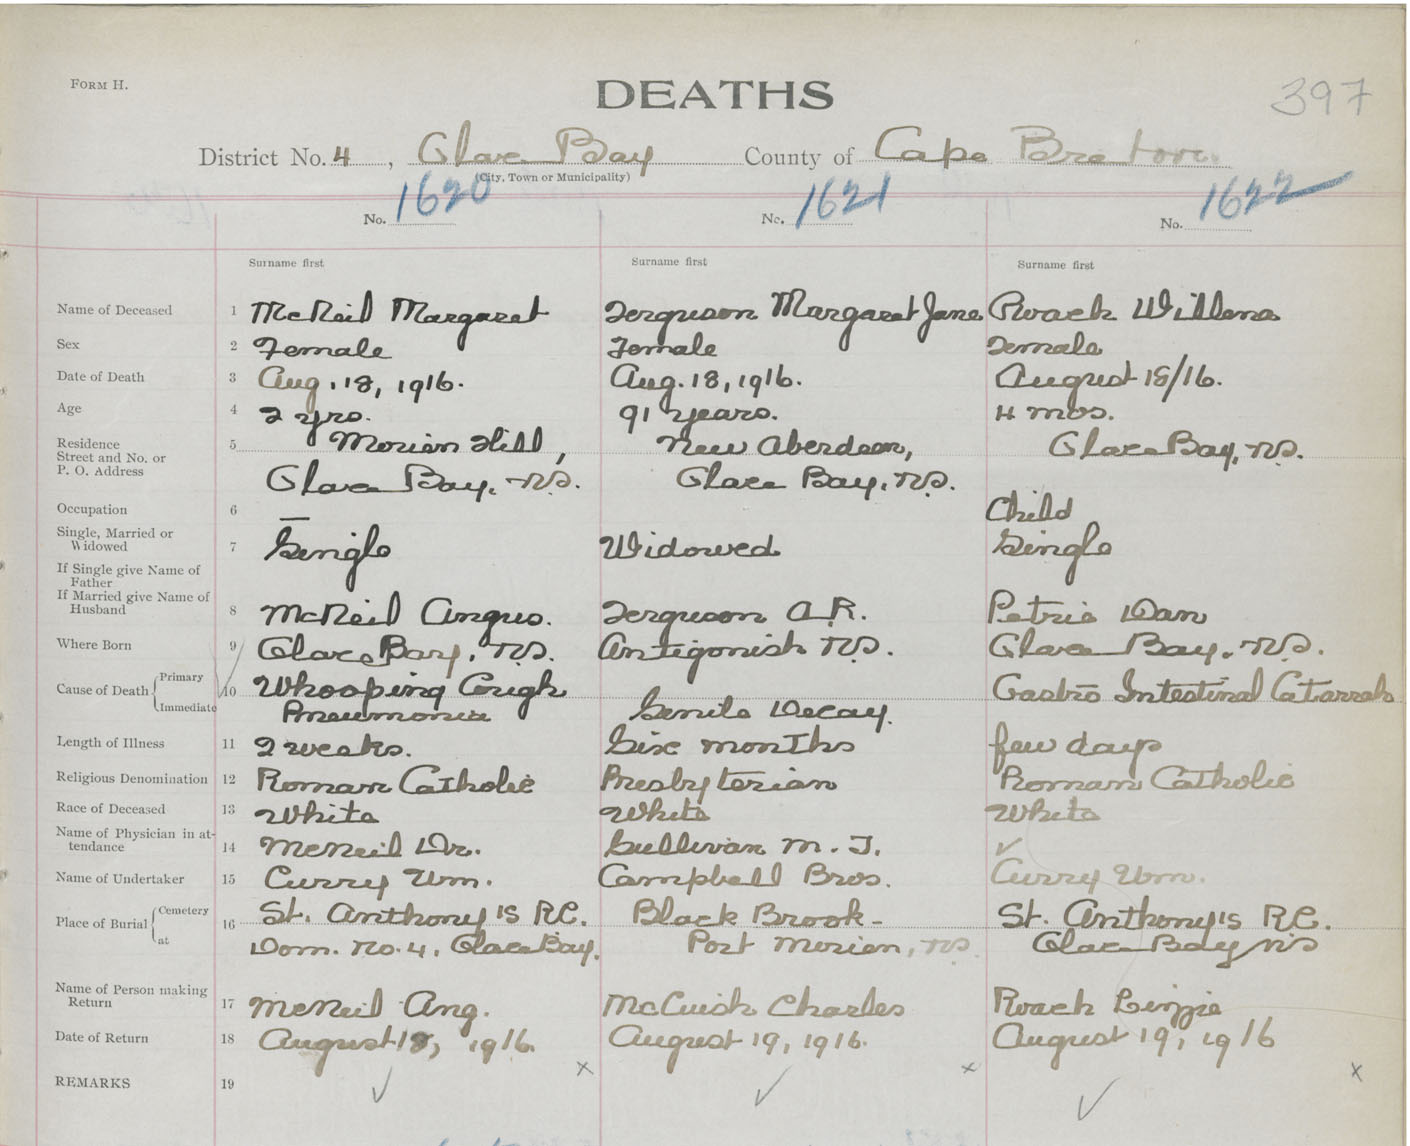 FORM H.
DEATHS
397
District No. 4, Glace Bay County of Cape Breton
(City, Town or Municipality)
No. 1620 No. 1621 No. 1622
Surname first Surname first Surname first
Name of Deceased 1 McNeil Margaret Ferguson Margaret Jane Roach Willena
Sex 2 Female Female Female
Date of Death 3 Aug. 18, 1916. Aug. 18, 1916. August 18/16.
Age 4 2 yrs. 91 years. 4 mos.
Residence 5 Morien Hill, New Aberdeen, Glace Bay, N.S.
Street and No. or
P. O. Address Glace Bay, N.S. Glace Bay, N.S.
Occupation 6 — Child
Single, Married or
Widowed 7 Single Widowed Single
If Single give Name of
Father
If Married give Name of
Husband 8 McNeil Angus. Ferguson A.R. Petrie Dan
Where Born 9 Glace Bay, N.S. Antigonish N.S. Glace Bay, N.S.
Cause of Death Primary 10 Whooping Cough Gastro Intestinal Catarrah
Immediate Pneumonia Senile Decay.
Length of Illness 11 2 weeks. Six months few days
Religious Denomination 12 Roman Catholic Presbyterian Roman Catholic
Race of Deceased 13 White White White
Name of Physician in at-
tendance 14 McNeil Dr. Sullivan M. T. ✓
Name of Undertaker 15 Curry Wm. Campbell Bros. Curry Wm.
Place of Burial Cemetery 16 St. Anthony's R.C. Black Brook- St. Anthony's R.C.
at Dom. No. 4, Glace Bay. Port Morien, N.S. Glace Bay NS
Name of Person making
Return 17 McNeil Ang. McCuish Charles Roach Lizzie
Date of Return 18 August 18, 1916. August 19, 1916. August 19, 1916
x x x
REMARKS 19 ✓ ✓ ✓